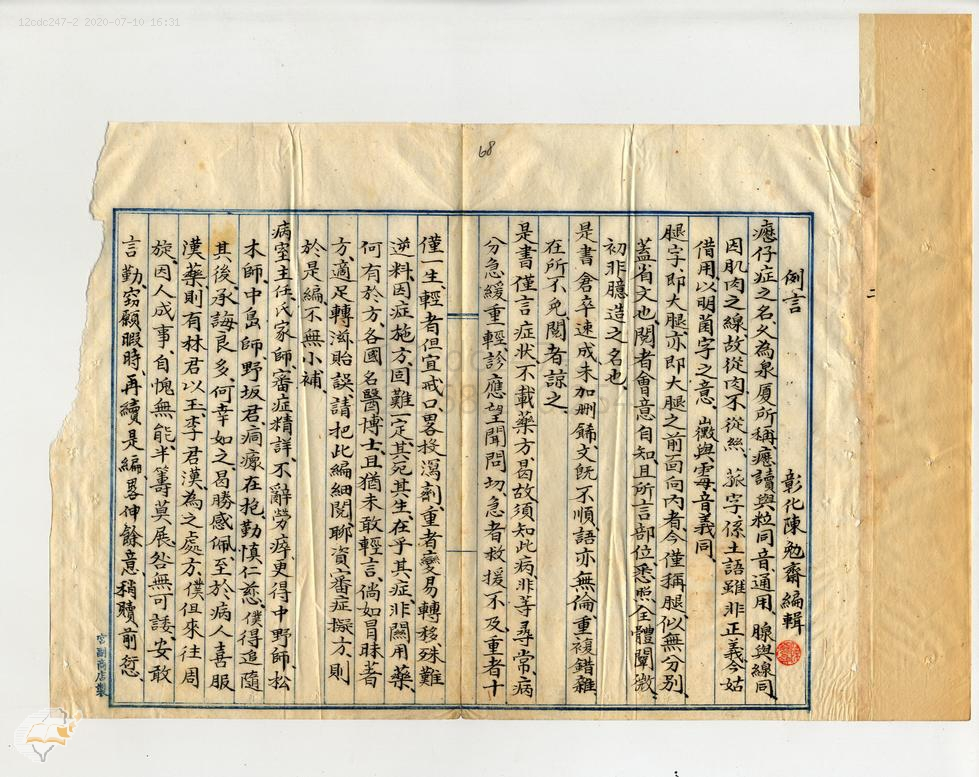 12cdc247-2 2020-07-10 16:31
68
例言
彰化陳勉齋編輯
瘧仔症之名乆為泉厦所稱瘧讀與粒同音通用、腺與線同
因肌肉之線故從肉不從絲、菰字、係土語雖非正義今姑
借用、以明菌字之意、黴與霉音義同、
腿字、即大腿亦即大腿之前面向內者今僅稱腿似無分別、
蓋省文也閱者會意自知且所言部位悉照全體闡微、
初非臆造之名也、
是書倉卒速成未加刪飾文旣不順語亦無倫重複錯雜
在所不免閱者諒之、
是書僅言症狀不載藥方曷故須知此病非等尋常病
分急緩重輕診應望聞問切、急者救援不及重者十
僅一生、輕者但宜戒口畧投瀉劑重者變易轉移殊難
逆料、因症施方固難一定其死其生、在乎其症、非關用藥、
何有於方、各國名醫博士、且猶未敢輕言倘如冒昧著
方、適足轉滋貽誤、請把此編細閱聊資審症擬方則
於是編不無小補、
病室主任氏家師、審症精詳、不辭勞瘁、更得中野師、松
木師中島師野坂君痌瘝在抱、勤慎仁慈、僕得追隨
其後、承誨良多、何幸如之、曷勝感佩、至於病人喜服
漢藥、則有林君以玉、李君漢、為之處方、僕但來往周
旋、因人成事、自愧無能、半籌莫展、咎無可諉、安敢
言勤、竊願暇時、再續是編、畧伸餘意、稍贖前愆、
宮副商店製